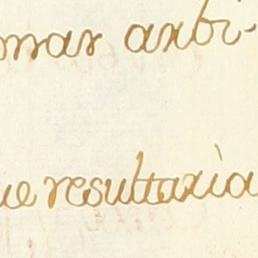 mar arbi-
ue resultaria